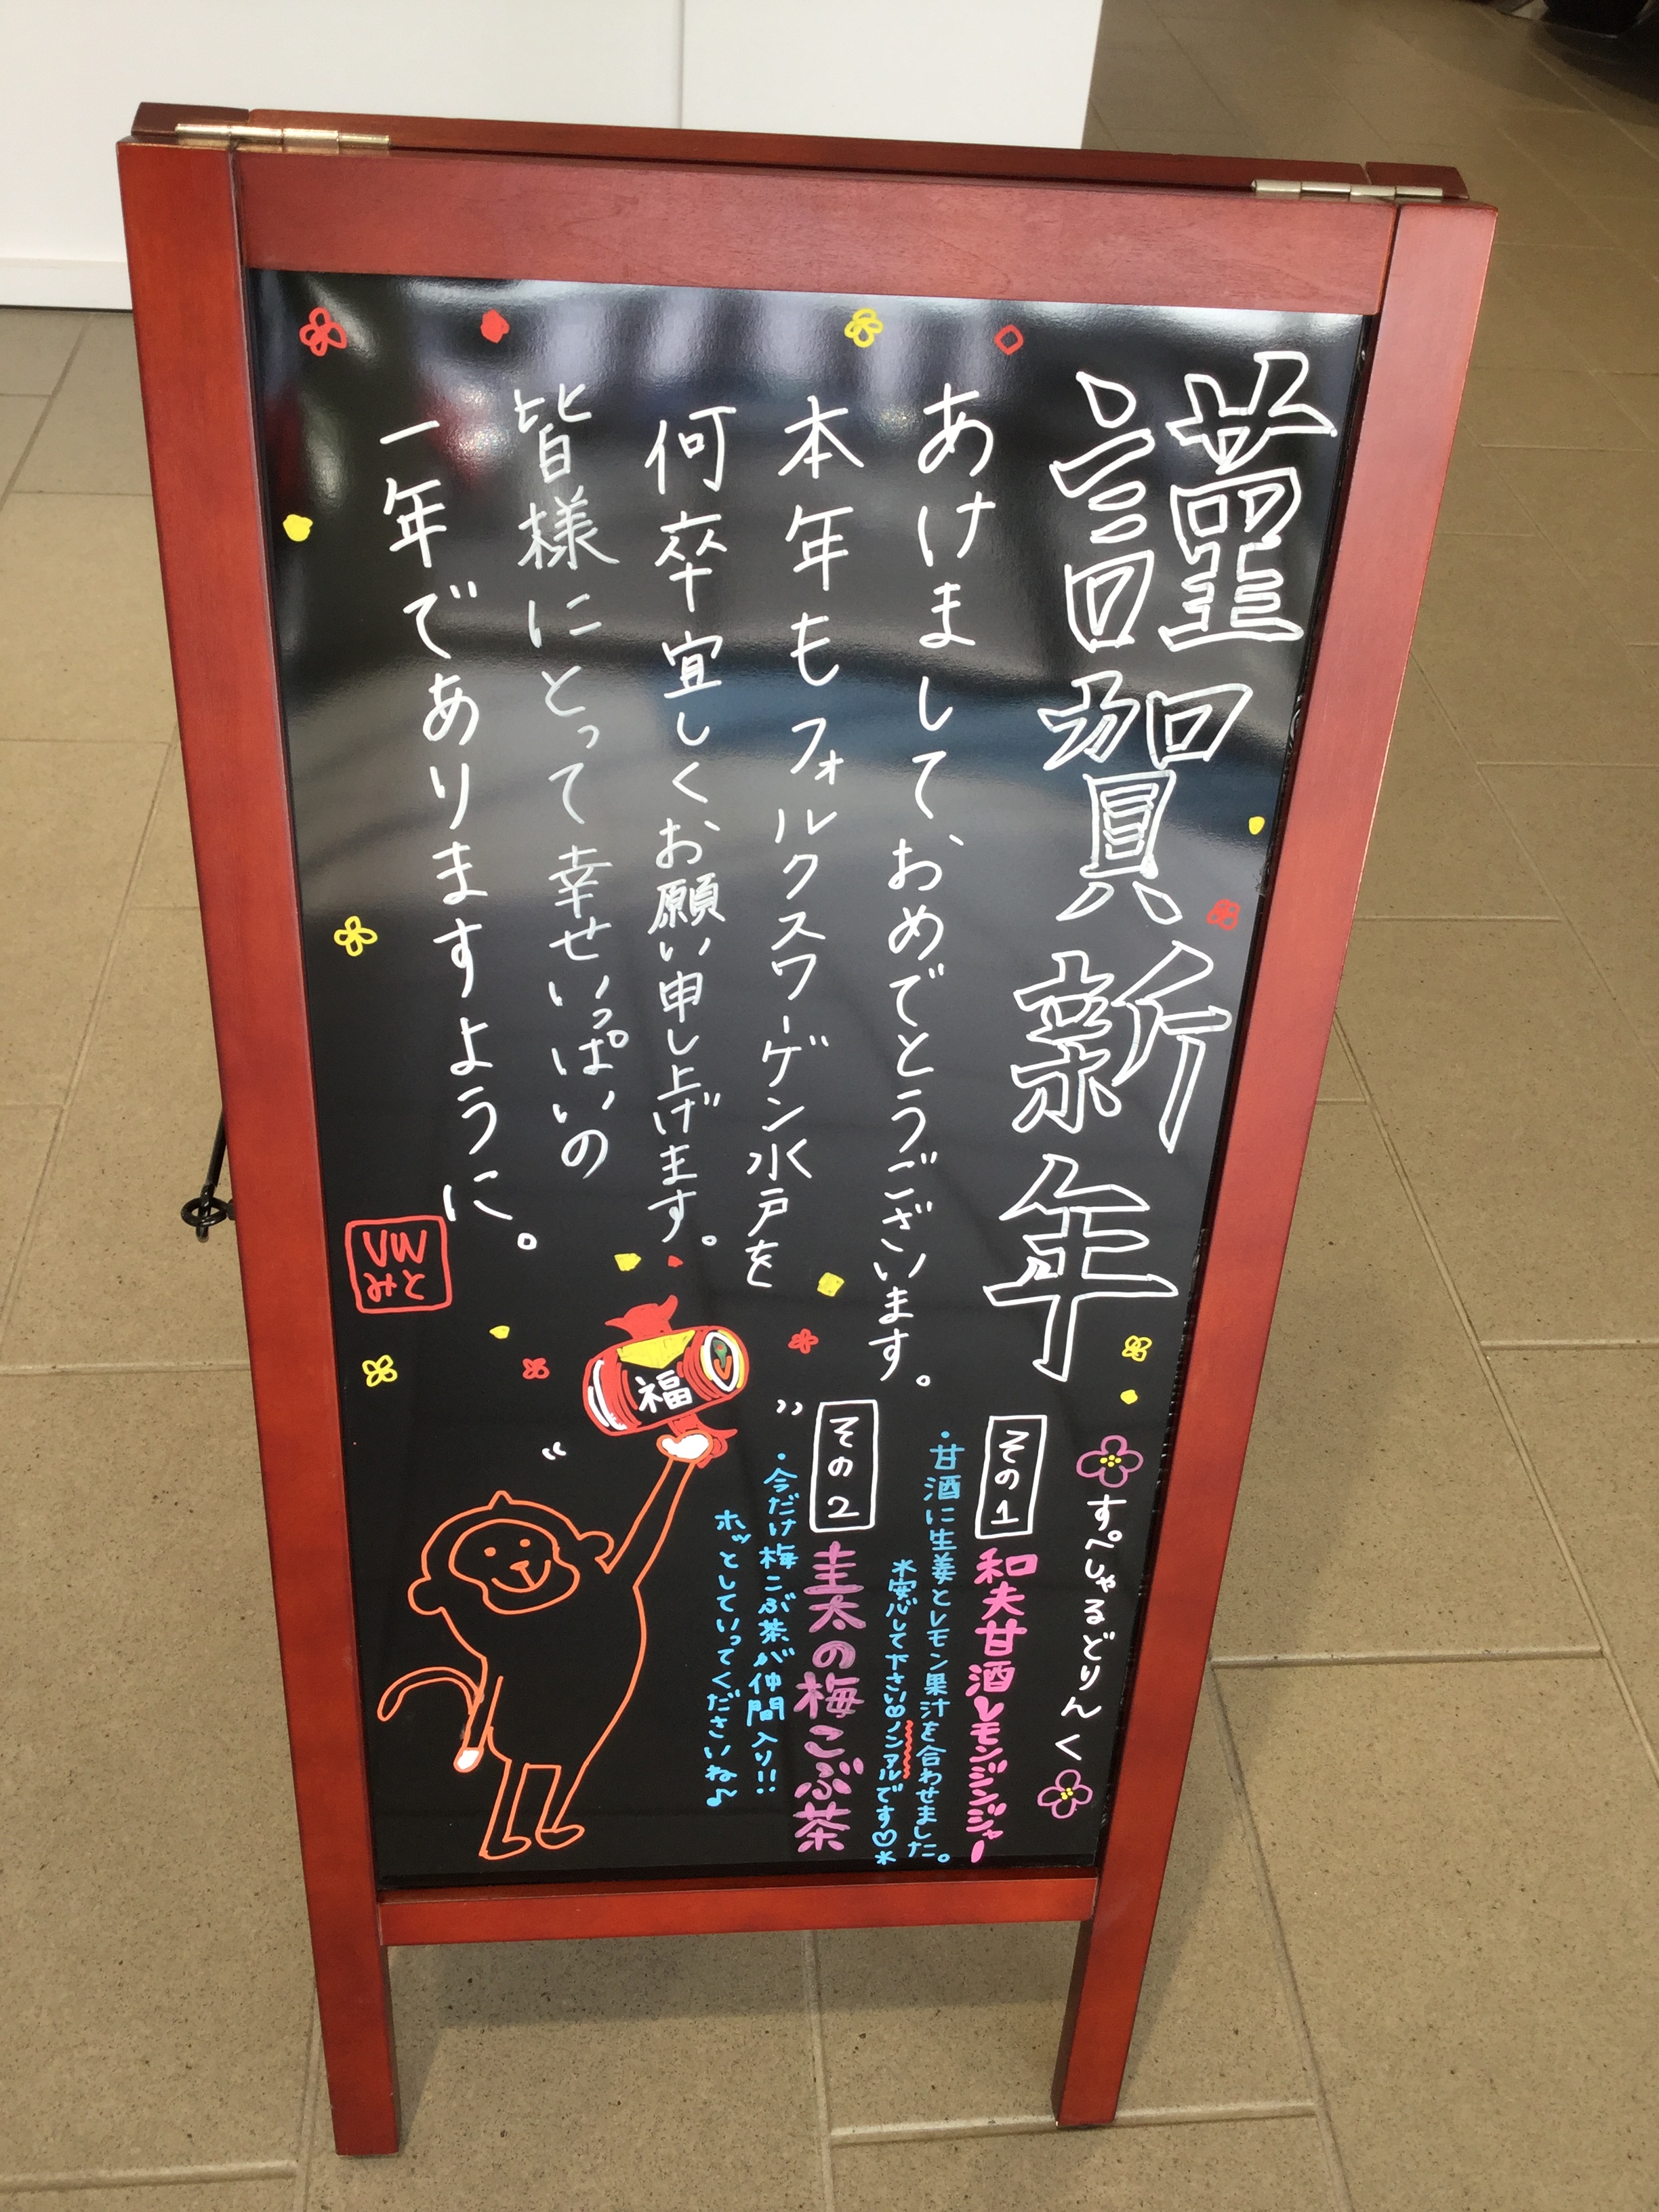 謹賀新年
あけまして、おめでとうございます。
本年もフォルクスワーゲン水戸を
何卒宜しくお願い申し上げます。
皆様にとって幸せいっぱいの
一年でありますように。
VW
みと
福
すぺしゃるどりんく
その1
和夫甘酒レモンジンジャー
・甘酒に生姜とレモン果汁を合わせました。
*安心して下さい♡ノンアルです♡*
その2
圭太の梅こぶ茶
・今だけ梅こぶ茶が仲間入り!!
ホッとしていってくださいね♪